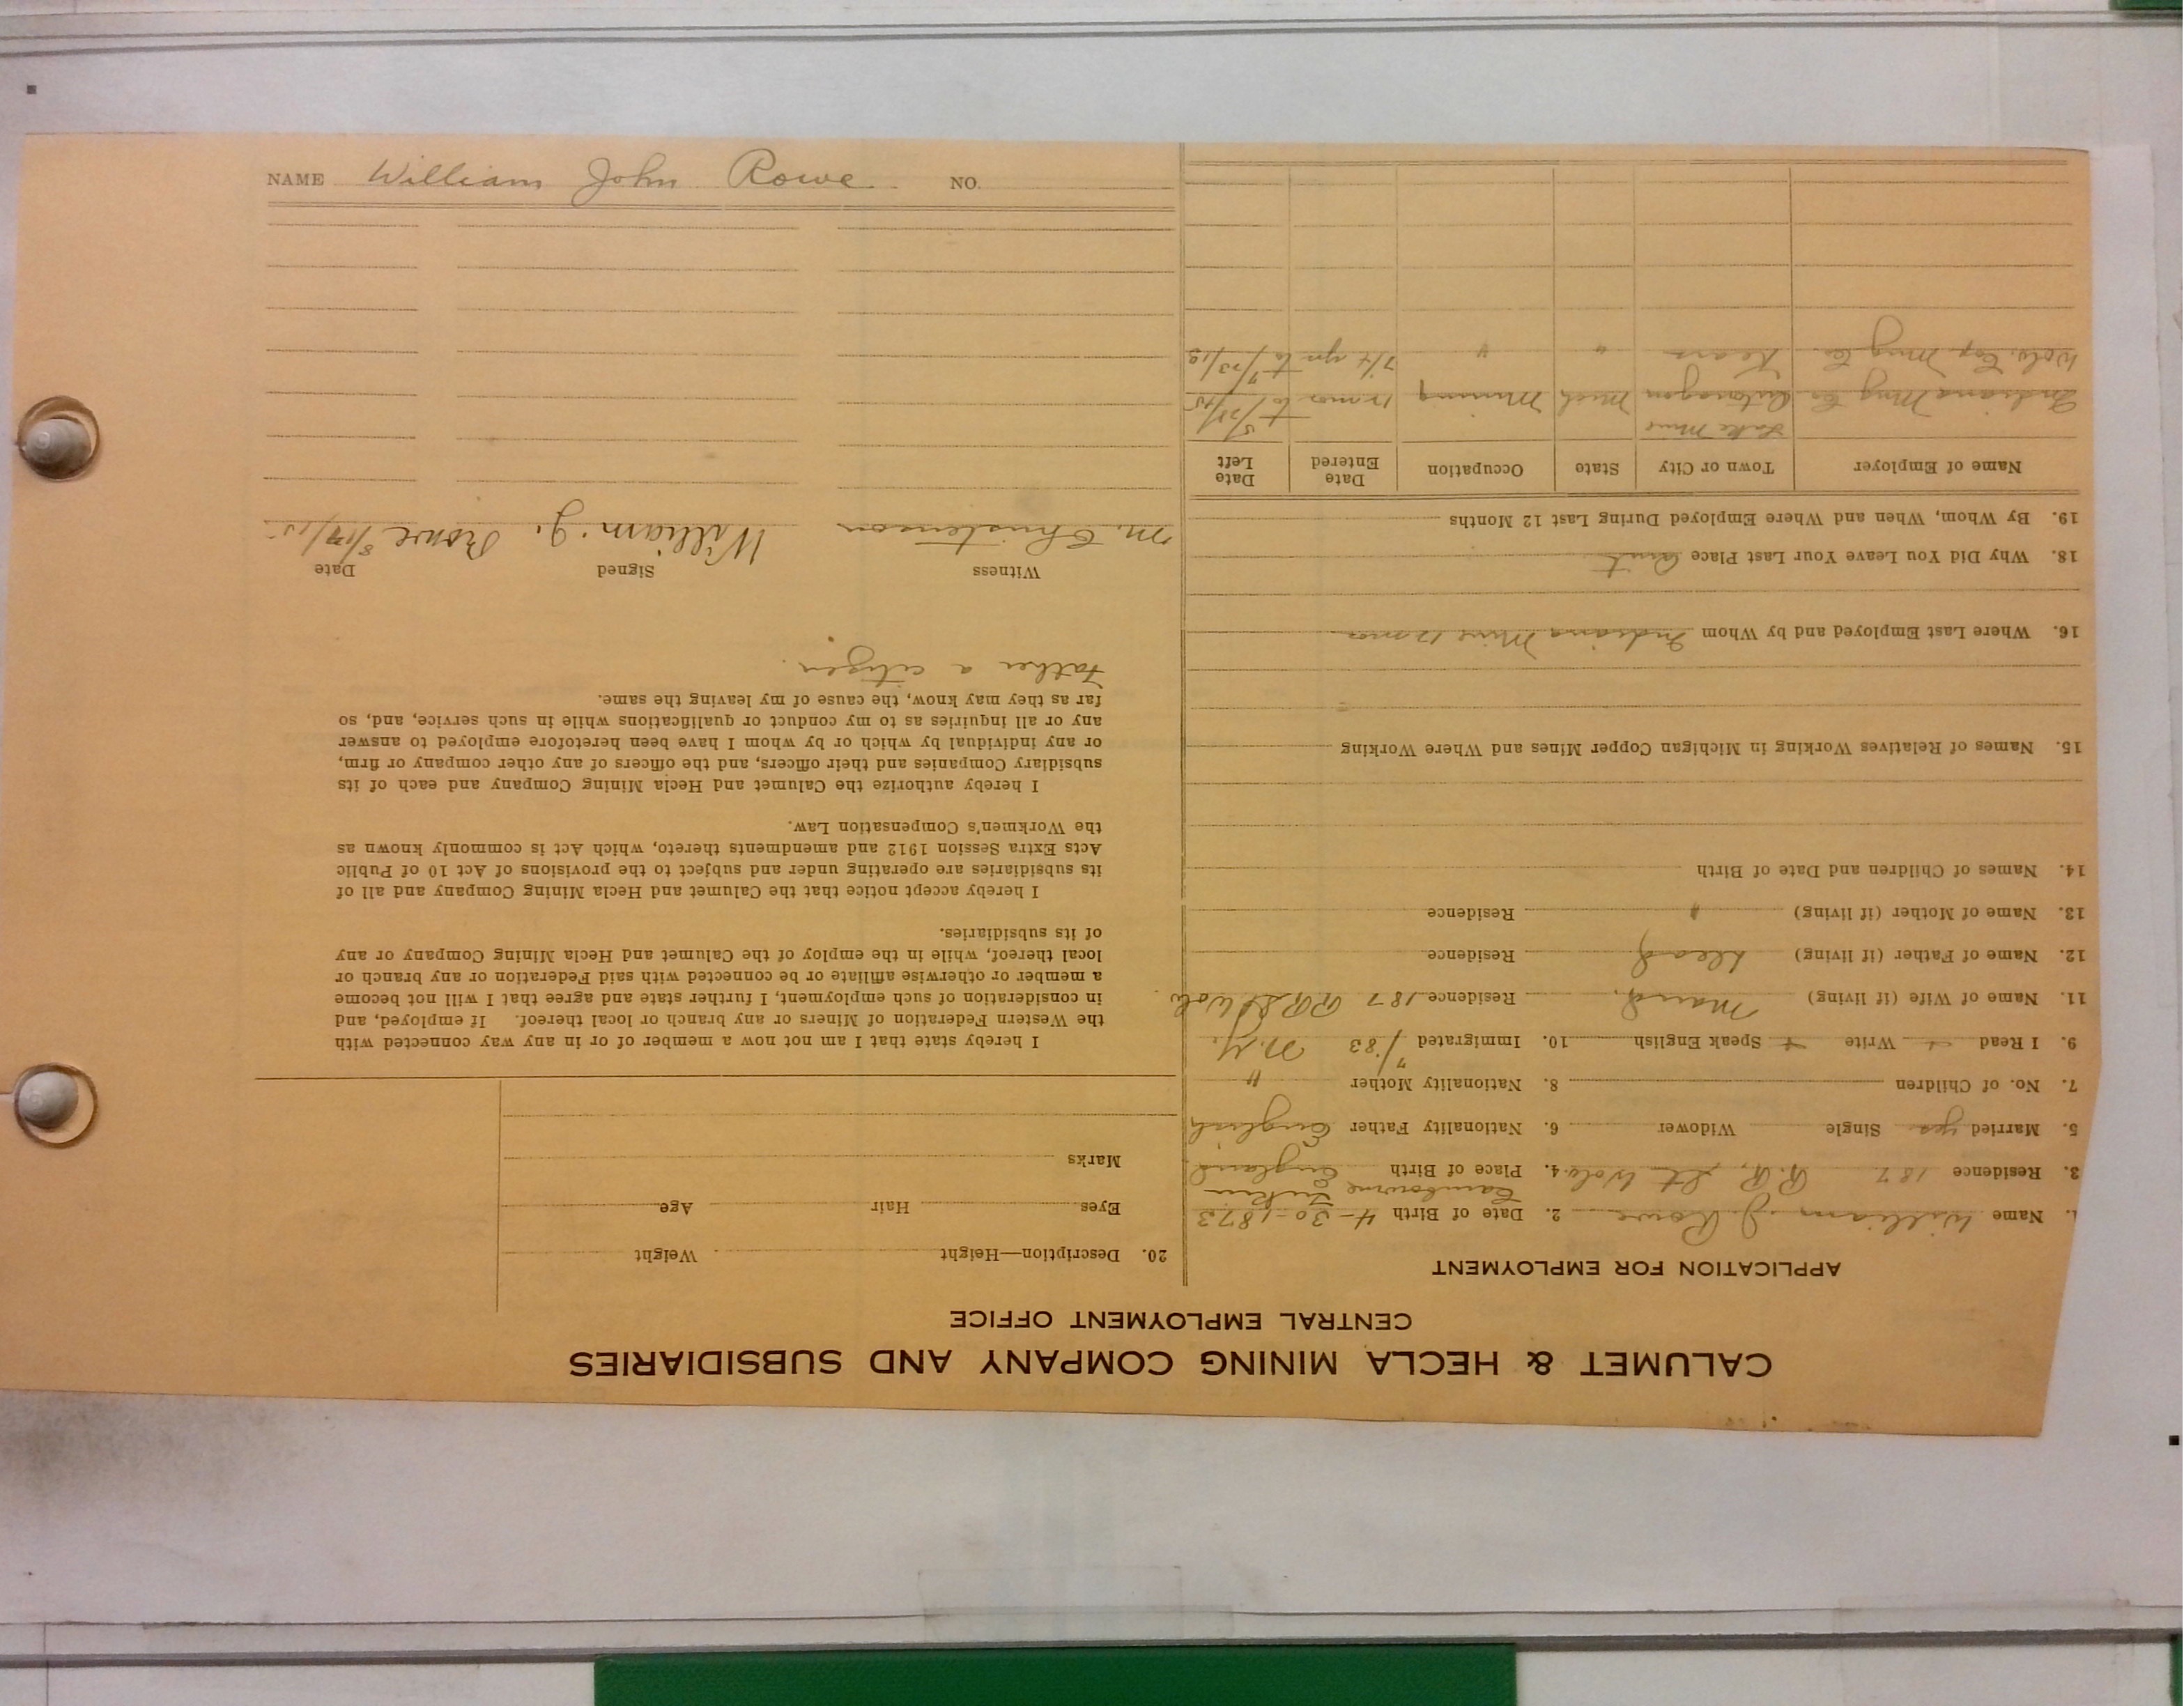 CALUMET & HECLA MINING COMPANY AND SUBSIDIARIES
CENTRAL EMPLOYMENT OFFICE
APPLICATION FOR EMPLOYMENT
1. Name William J. Rowe 2. Date of Birth 4-30-1873
Cambourne
3. Residence 187 R.R. St Wolv. 4. Place of Birth England
5. Married yes Single Widower 6. Nationality Father English
7. No. of Children 8. Nationality Mother "
9. I Read + Write + Speak English 10. Immigrated 7/83 N.Y.
11. Name of Wife (if living) Maud. Residence 187 RR St Wolv
12. Name of Father (if living) dead Residence
13. Name of Mother (if living) " Residence
14. Names of Children and Date of Birth
15. Names of Relatives Working in Michigan Copper Mines and Where Working
16. Where Last Employed and by Whom Indiana Mine 12 mos
18. Why Did You Leave Your Last Place Quit
19. By Whom, When and Where Employed During Last 12 Months
Name of Employer Town or City State Occupation Date Entered Date Left
Lake Mine
Indiana Mng Co Mich Mining 12 mos to
Wolv. Cop. Mng Co. Kears " " 7/4 yrs to
20. Description—Height Weight
Eyes Hair Age
Marks
I hereby state that I am not now a member of or in any way connected with
the Western Federation of Miners or any branch or local thereof. If employed, and
in consideration of such employment, I further state and agree that I will not become
a member or otherwise affiliate or be connected with said Federation or any branch or
local thereof, while in the employ of the Calumet and Hecla Mining Company or any
of its subsidiaries.
I hereby accept notice that the Calumet and Hecla Mining Company and all of
its subsidiaries are operating under and subject to the provisions of Act 10 of Public
Acts Extra Session 1912 and amendments thereto, which Act is commonly known as
the Workmen's Compensation Law.
I hereby authorize the Calumet and Hecla Mining Company and each of its
subsidiary Companies and their officers, and the officers of any other company or firm,
or any individual by which or by whom I have been heretofore employed to answer
any or all inquiries as to my conduct or qualifications while in such service, and, so
far as they may know, the cause of my leaving the same.
Father a citizen.
Witness Signed Date
M. Christenson William. J. Rowe
NAME William John Rowe NO.